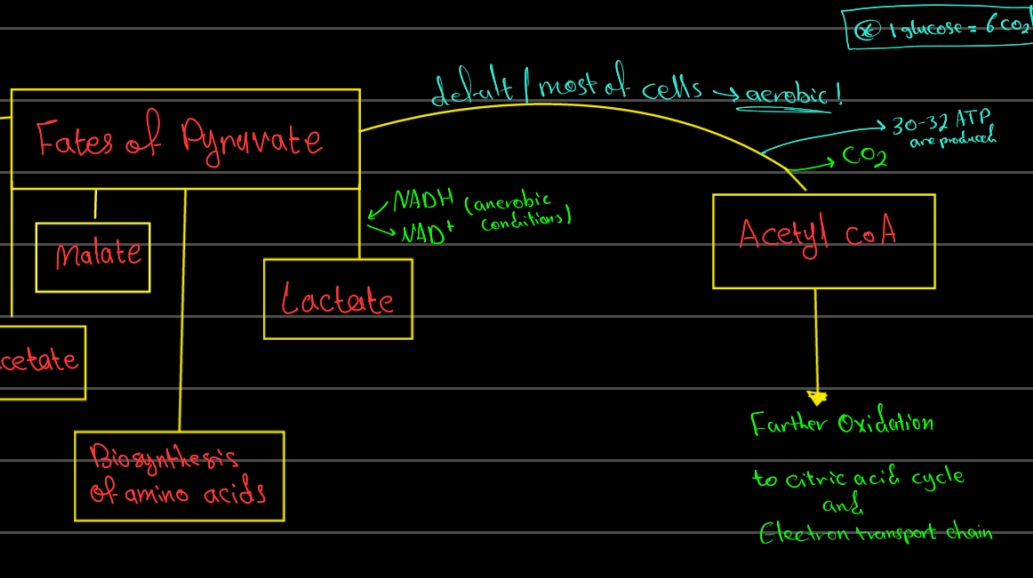 ⊛ 1 glucose = 6 CO2
defult / most of cells → aerobic!
30-32 ATP
are produced
CO2
Fates of Pyruvate
NADH (anerobic
conditions)
NAD+
Malate
Acetyl coA
Lactate
cetate
Biosynthesis
of amino acids
Farther Oxidation
to citric acid cycle
and
Electron transport chain